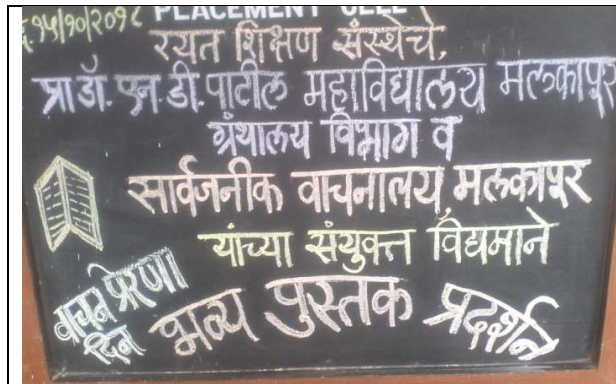 PLACEMENT CELL
दि. १५/१०/२०१८
रयत शिक्षण संस्थेचे,
प्रा.डॉ. एन. डी. पाटील महाविद्यालय मलकापूर
ग्रंथालय विभाग व
सार्वजनीक वाचनालय, मलकापूर
यांच्या संयुक्त विद्यमाने
वाचन प्रेरणा
दिन
भव्य पुस्तक प्रदर्शन